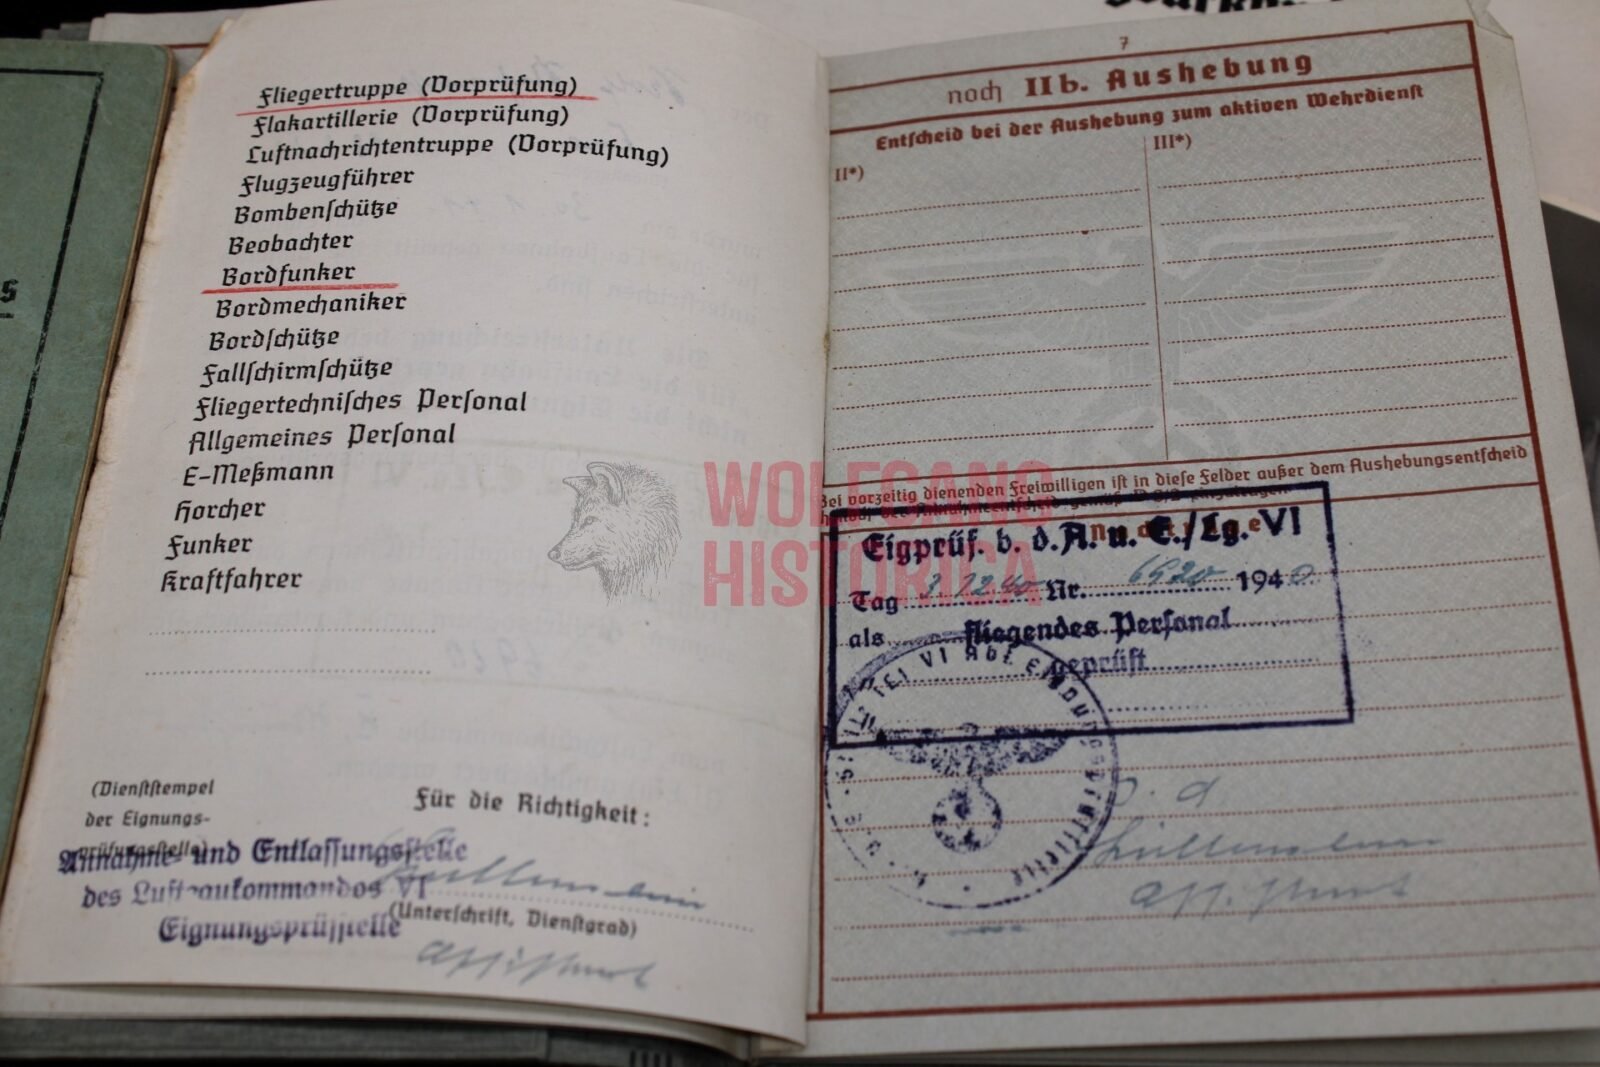 Fliegertruppe (Vorprüfung)
Flakartillerie (Vorprüfung)
Luftnachrichtentruppe (Vorprüfung)
Flugzeugführer
Bombenschütze
Beobachter
Bordfunker
Bordmechaniker
Bordschütze
Fallschirmschütze
Fliegertechnisches Personal
Allgemeines Personal
E-Meßmann
Horcher
Funker
Kraftfahrer
(Dienststempel
der Eignungs-
prüfungsstelle)
Für die Richtigkeit:
Annahme- und Entlassungsstelle
des Luftgaukommandos VI
Eignungsprüfstelle
(Unterschrift, Dienstgrad)
7
noch IIb. Aushebung
Entscheid bei der Aushebung zum aktiven Wehrdienst
II*)
III*)
Bei vorzeitig dienenden Freiwilligen ist in diese Felder außer dem Aushebungsentscheid
Eigprüf. b. d. A. u. E./Lg. VI
Tag 3.12.40 Nr. 6920 1940
als fliegendes Personal
geprüft
WOLFGANG
HISTORICA